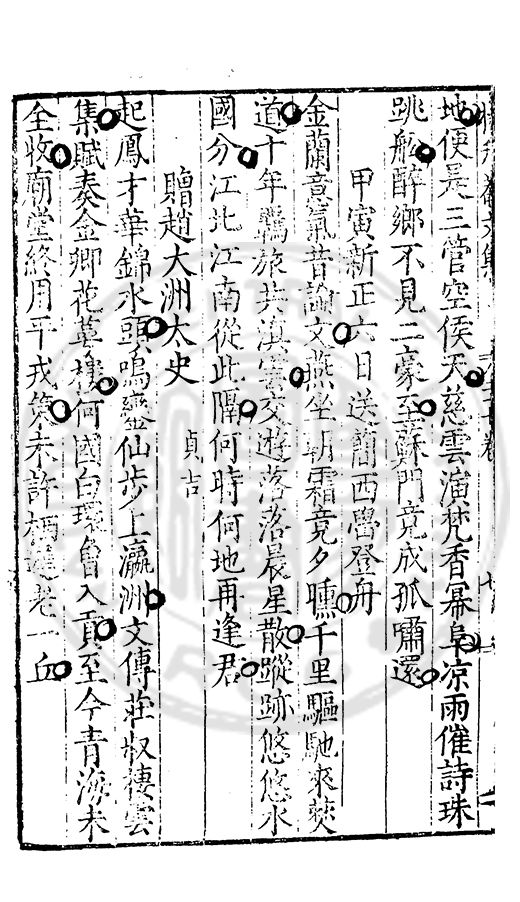 地便是三管空侯天慈雲演梵香冪阜凉雨催詩珠
跳舩醉鄉不見二豪至蘇門竟成孤嘯還
甲寅新正六日送簡西嶨登舟
金蘭意氣昔論文燕坐朝霜竟夕曛千里驅馳來僰
道十年羈旅共滇雲交遊落落晨星散蹤跡悠悠水
國分江北江南從此隔何時何地再逢君
贈趙大洲太史 貞吉
起鳳才華錦水頭鳴鑾仙步上瀛洲文傳莊叔棲雲
集賦奏金卿花萼樓何國白環曾入貢至今青海未
全收廟堂終用平戎策未許栖遲老一丘